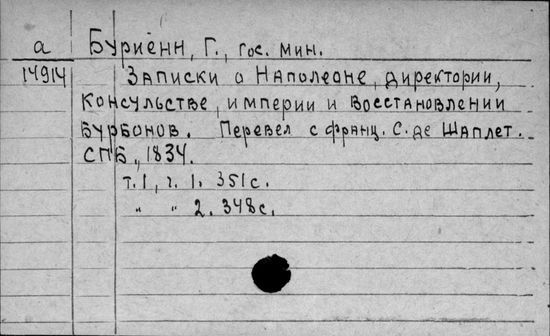 а Буриенн, Г., гос. мин.
14914 Записки о Наполеоне, директории,
консульстве, империи и восстановлении
Бурбонов. Перевел с франц. С. де Шаплет.
СПБ., 1834.
т. 1, ч. 1. 351 с.
" " 2. 348 с.